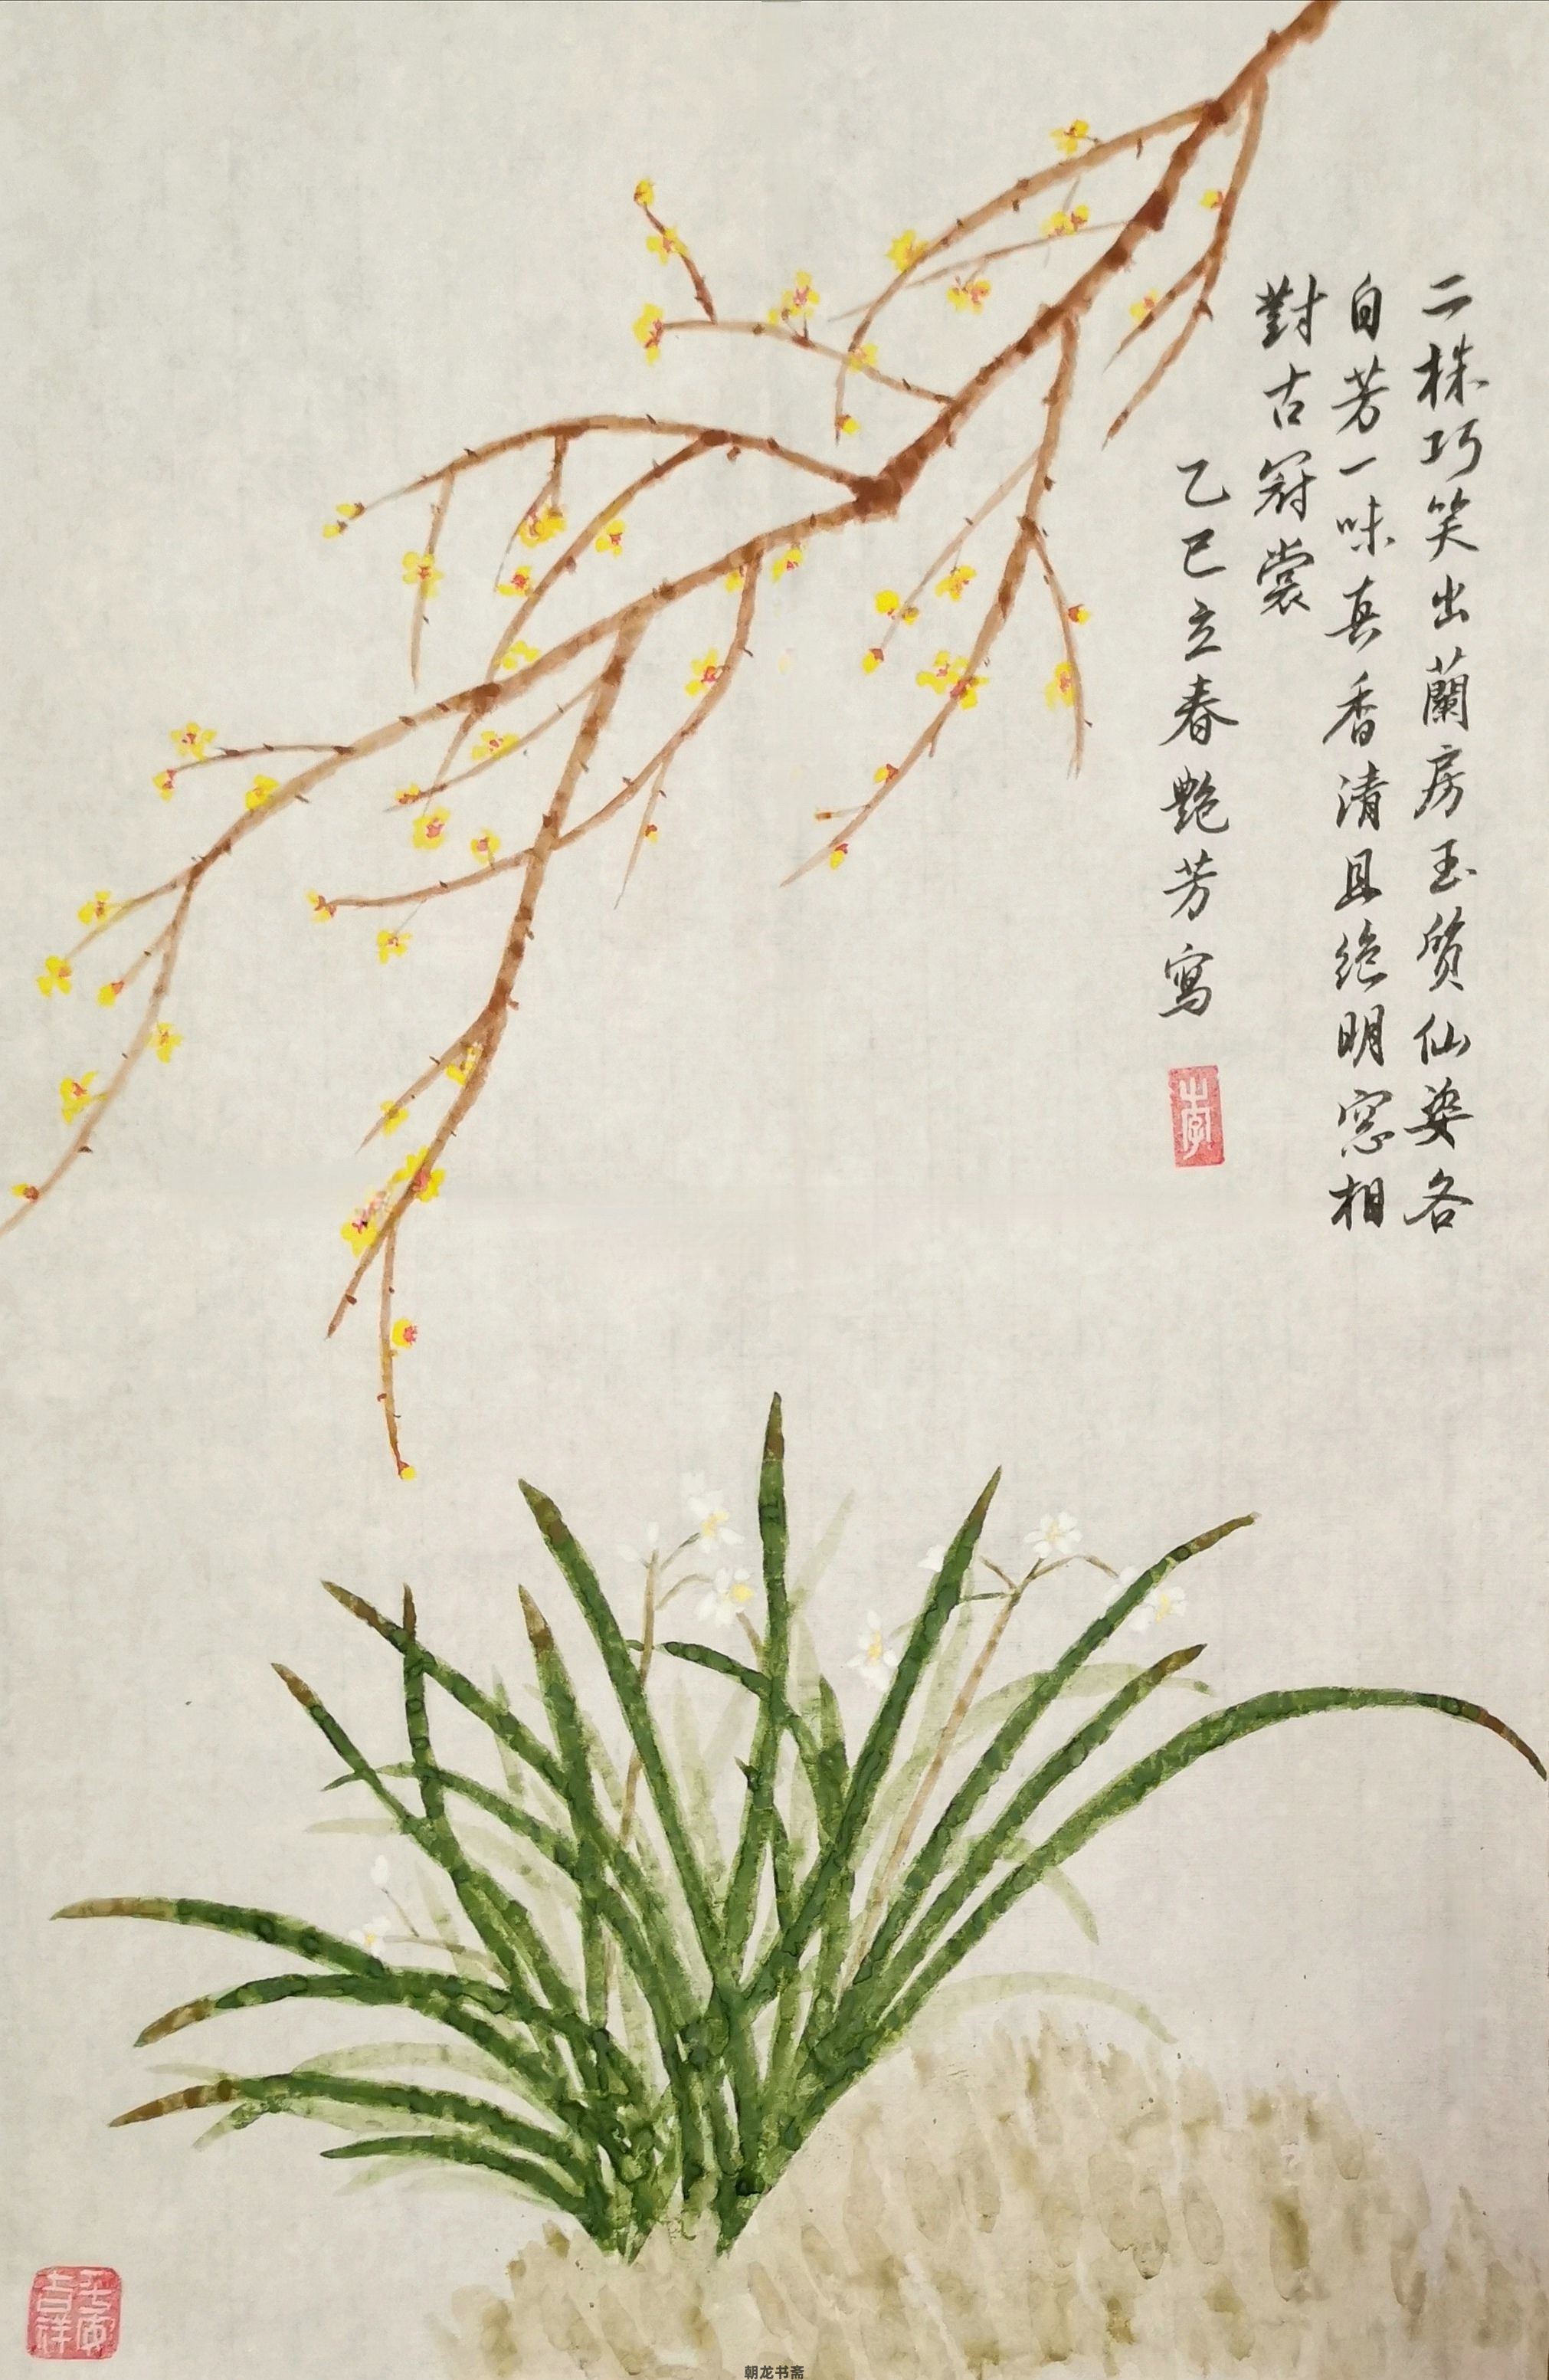 二株巧笑出蘭房玉質仙姿各
自芳一味真香清且絶明窓相
對古冠裳
乙巳立春艷芳寫
李
平安
吉祥
朝龙书斋